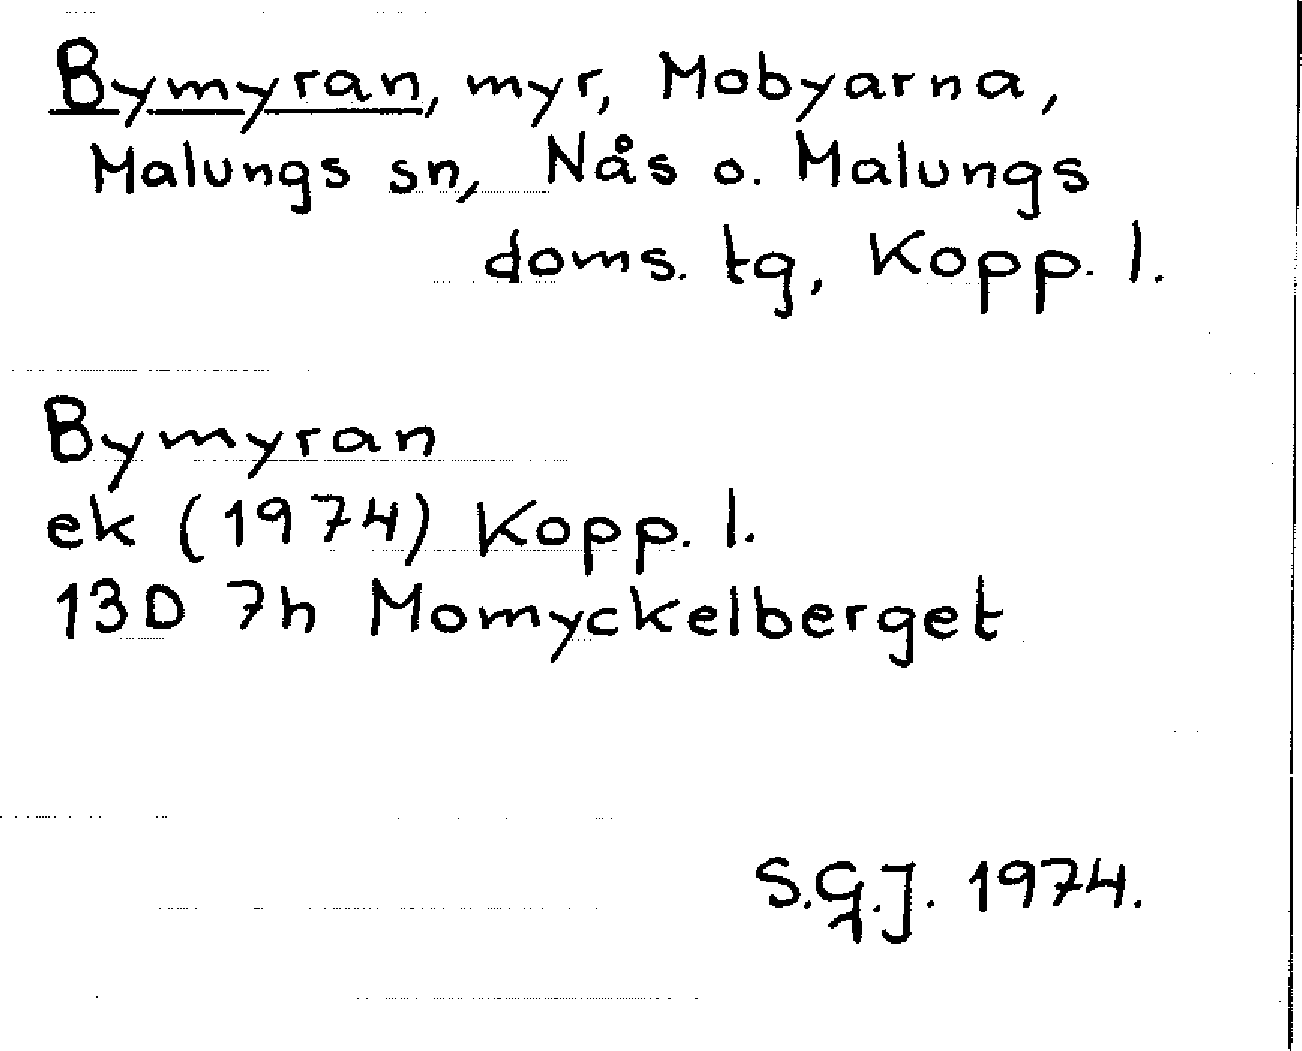 Bymyran, myr, Mobyarna,
Malungs sn, Nås o. Malungs
doms. tg, Kopp. l.
Bymyran
ek (1974) Kopp. l.
13D 7h Momyckelberget
S.G.J. 1974.